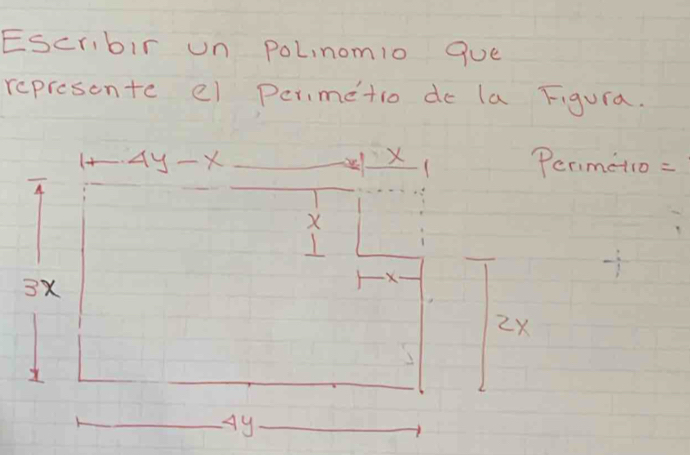 Escribir un polinomio que
represente el perimétro de la Figura.
4y - x x Perimétro =
x
3x x 2x
4y